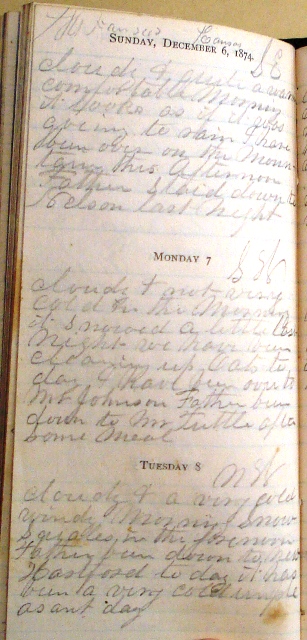 SUNDAY, DECEMBER 6, 1874.
S E
cloudy & quite a warm
comfortable Morning
it looks as if it was
going to rain I have
been over on the Moun
tain this afternoon
Father staid down to
Nelson last night
MONDAY 7
S W
cloudy & not very
cold in the Morning
it snowed a little last
night we have been
cleaning up Oats to
day I have been over to
Mr Johnson Father been
down to Mr Tuttle after
some Meal
TUESDAY 8
N W
cloudy & a very cold
windy Morning snow
squales in the forenoon
Father been down to New
Hartford to day it has
been a very cold unple
asant day